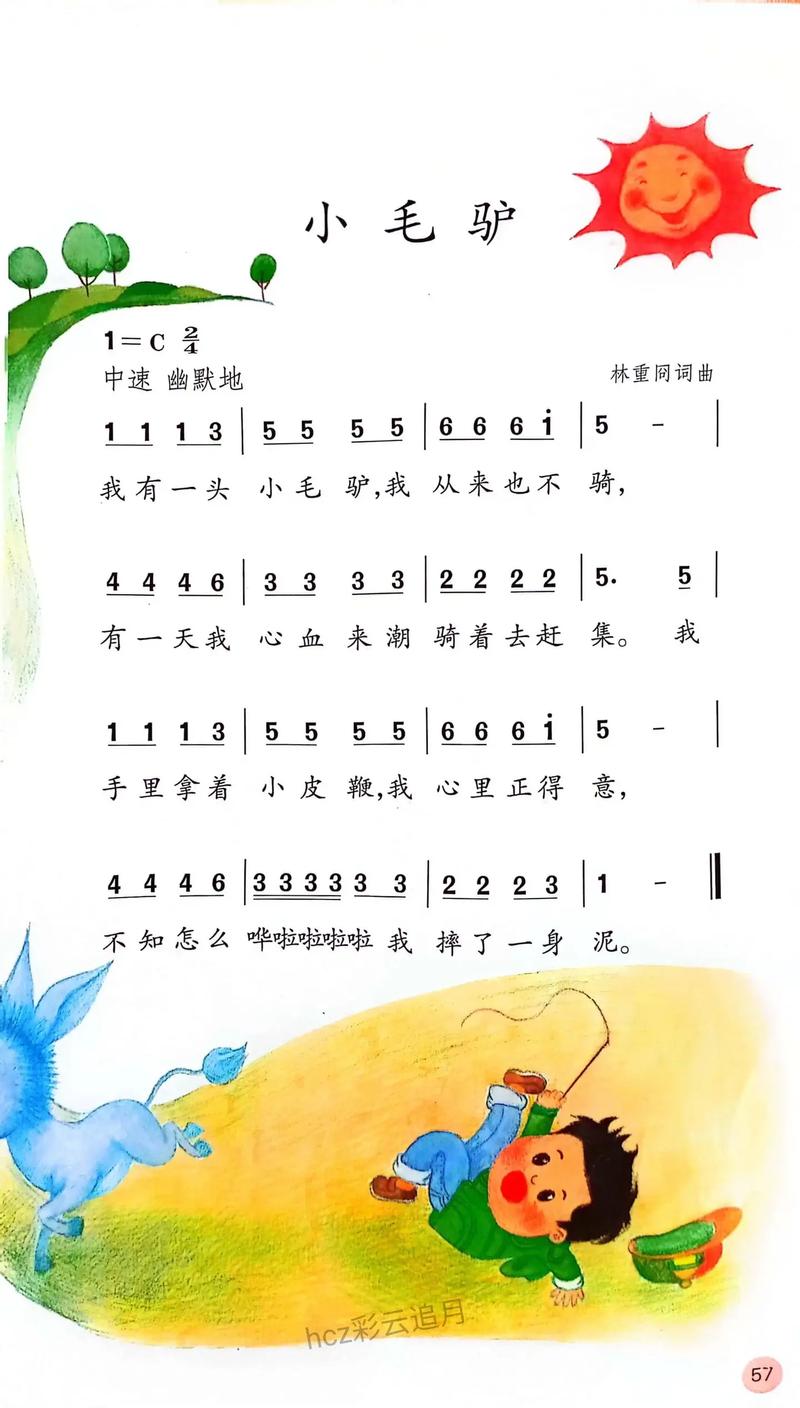 小毛驴
1=C 2/4
中速 幽默地 林重冏词曲
1 1 1 3 | 5 5 5 5 | 6 6 6 i | 5 - |
我有一头 小毛驴,我 从来也不 骑,
4 4 4 6 | 3 3 3 3 | 2 2 2 2 | 5. 5 |
有一天我 心血来潮 骑着去赶 集。 我
1 1 1 3 | 5 5 5 5 | 6 6 6 i | 5 - |
手里拿着 小皮鞭,我 心里正得 意,
4 4 4 6 | 3 3 3 3 3 3 | 2 2 2 3 | 1 - ‖
不知怎么 哗啦啦啦啦 我 摔了一身 泥。
hcz彩云追月
57